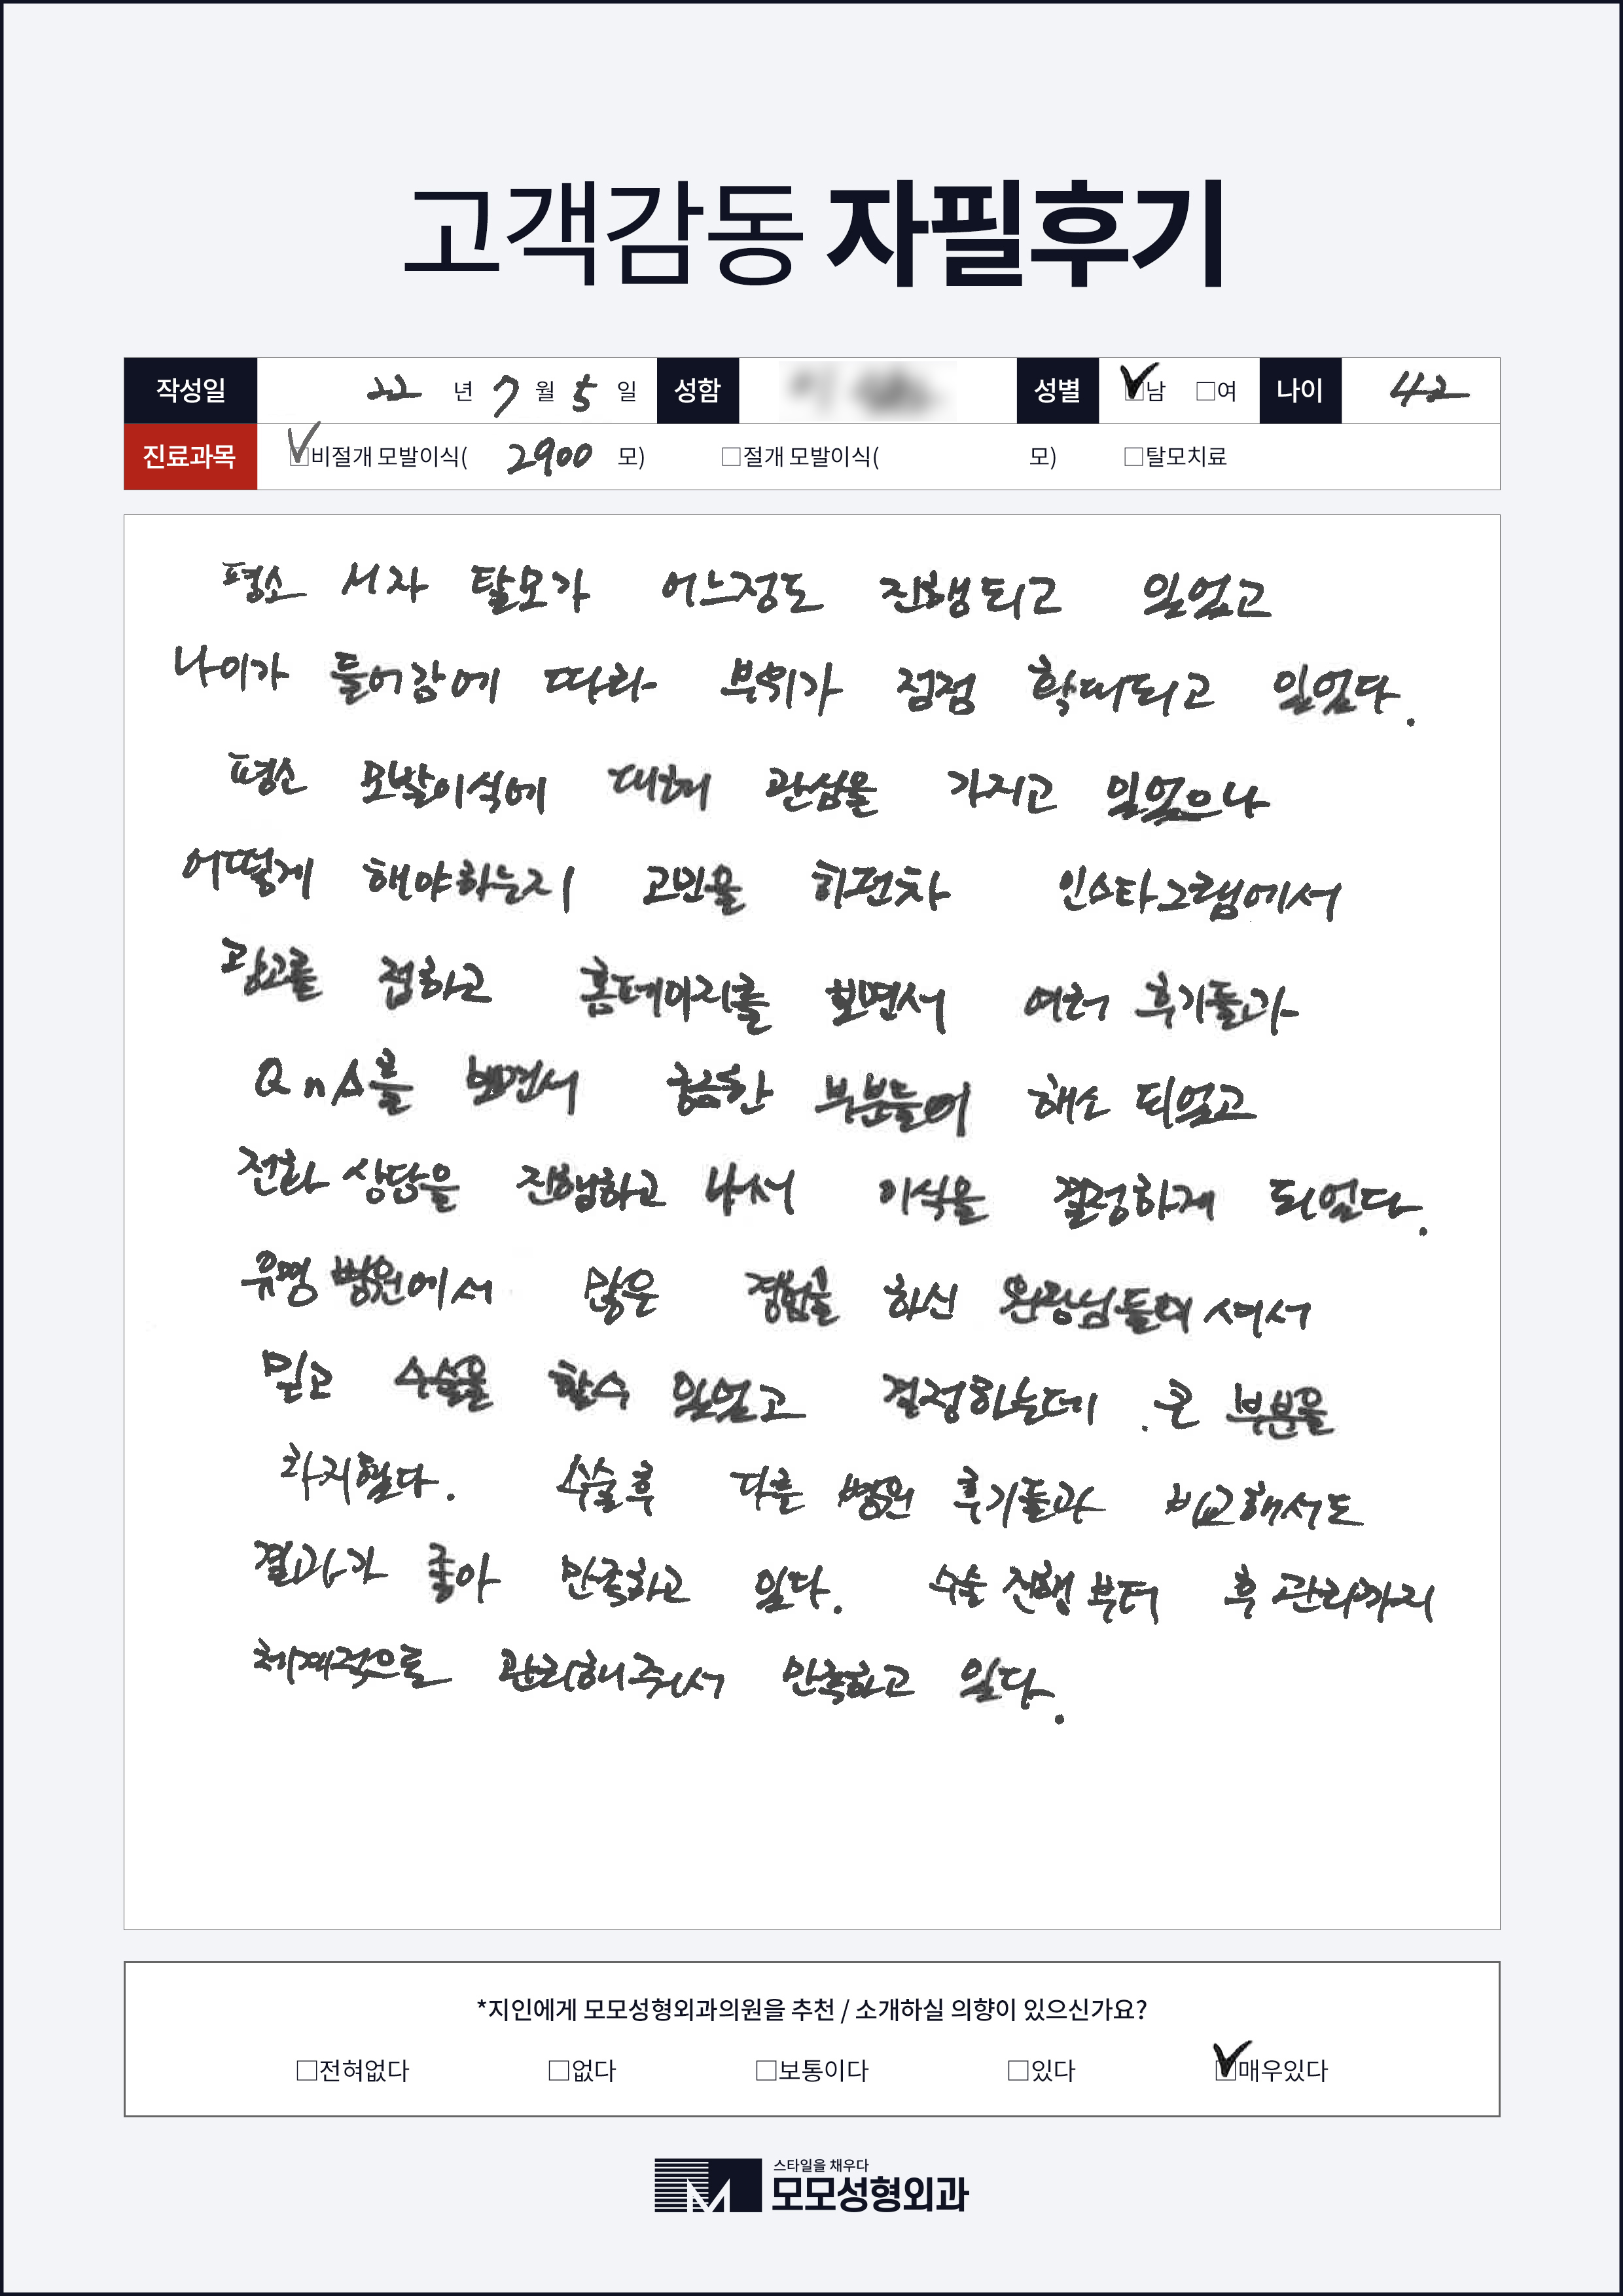 고객감동 자필후기
작성일 22 년 7 월 5 일 성함 성별 ☑남 □여 나이 42
진료과목 ☑비절개 모발이식( 2900 모) □절개 모발이식( 모) □탈모치료
평소 M자 탈모가 어느정도 진행되고 있었고
나이가 들어감에 따라 부위가 점점 확대되고 있었다.
평소 모발이식에 대해 관심을 가지고 있었으나
어떻게 해야하는지 고민을 하던차 인스타그램에서
광고를 접하고 홈페이지를 보면서 여러 후기들과
QnA를 보면서 궁금한 부분들이 해소 되었고
전화 상담을 진행하고 나서 이식을 결정하게 되었다.
유명 병원에서 많은 경험을 하신 원장님들이셔서
믿고 수술을 할수 있었고 결정하는데 큰 부분을
차지했다. 수술후 다른 병원 후기들과 비교해서도
결과가 좋아 만족하고 있다. 수술 진행부터 후 관리까지
체계적으로 관리해주셔서 만족하고 있다.
*지인에게 모모성형외과의원을 추천 / 소개하실 의향이 있으신가요?
□전혀없다 □없다 □보통이다 □있다 ☑매우있다
스타일을 채우다
모모성형외과